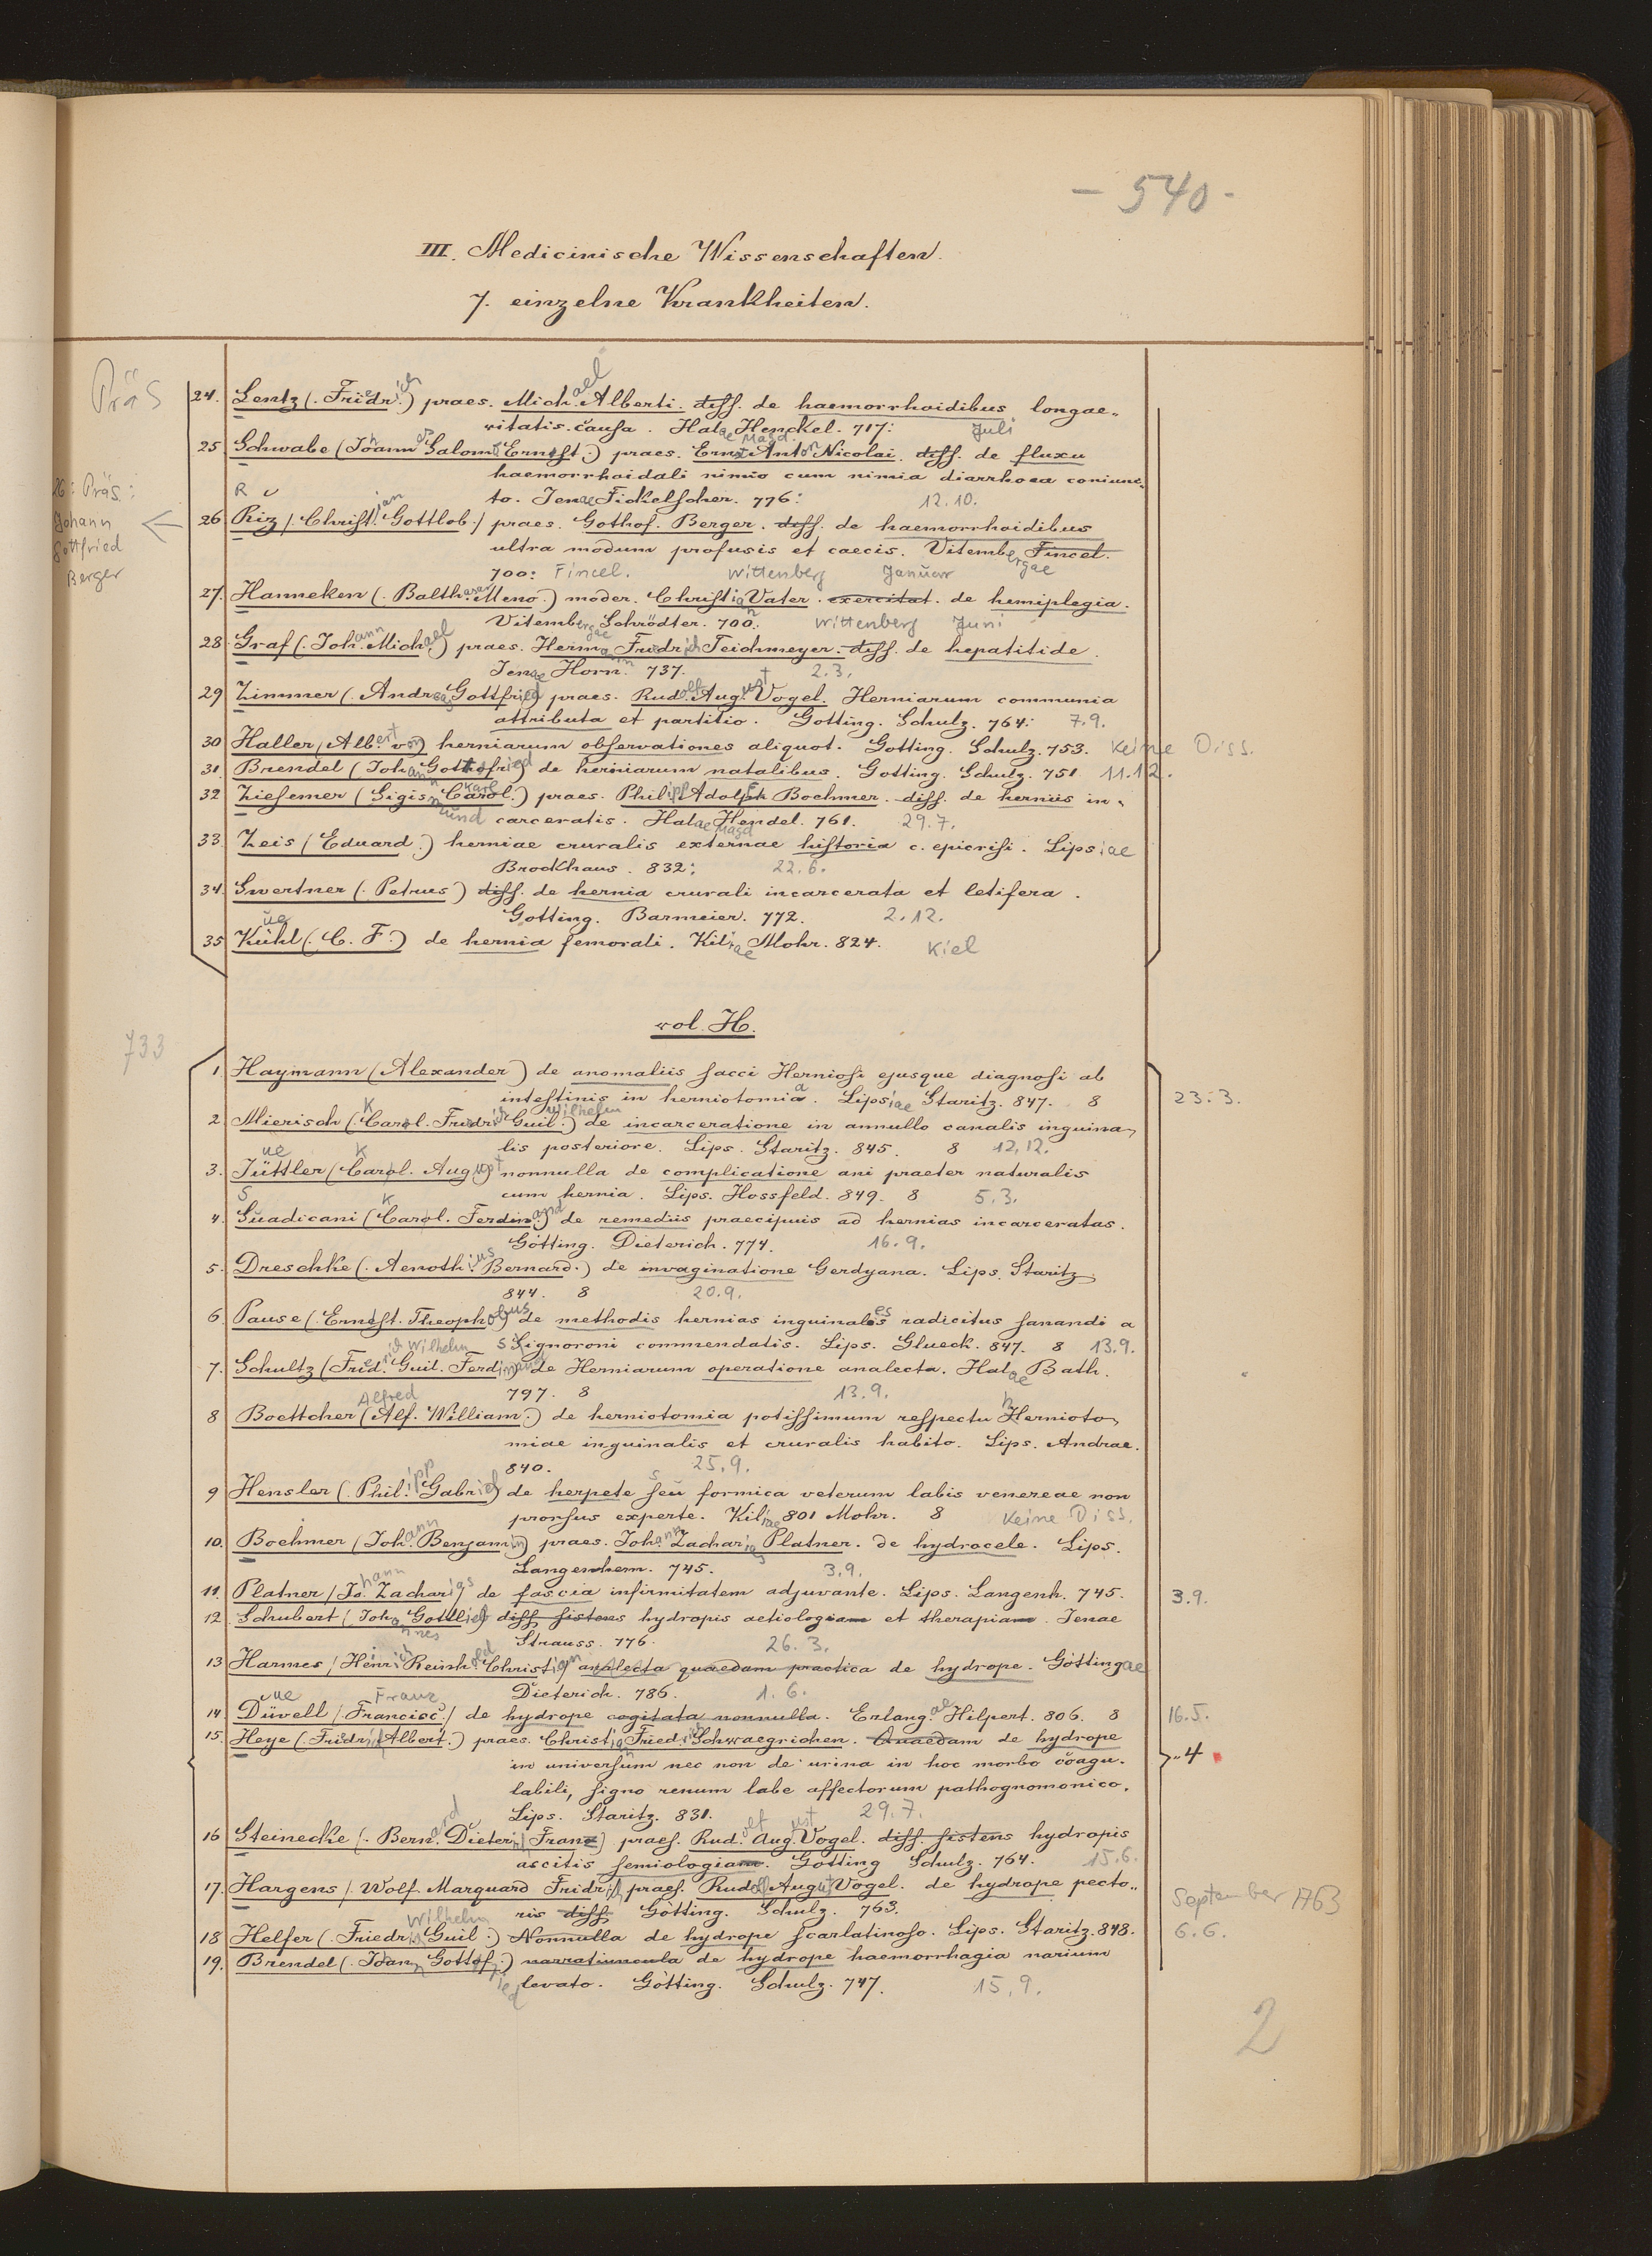 - 540 -
III. Medicinische Wissenschaften.
7. einzelne Krankheiten.
Präs
24. Lentz (. Friedrich.) praes. Michael Alberti. diss. de haemorrhoidibus longae-
vitatis causa. Halae Magd. Henckel. 717: Juli
25 Schwabe (Johann Salomo Ernst.) praes. Ernst Anton Nicolai. diss. de fluxu
haemorrhoidali nimio cum nimia diarrhoea coniunc-
to. Jenae Fickelscher. 776: 12.10.
26: Präs.:
Johann
Gottfried
Berger
R
26 Riz /. Christian Gottlob./ praes. Gothof. Berger. diss. de haemorrhoidibus
ultra modum profusis et caecis. Vitembergae Fincel.
700: Fincel. Wittenberg Januar
27. Hanneken (. Balthasar Meno.) moder. Christian Vater. exercitat. de hemiplegia.
Vitembergae Schrödter. 700. Wittenberg Juni
28. Graf (. Johann Michael) praes. Hermann Friedrich Teichmeyer. diss. de hepatitide.
Jenae Horn. 737. 2.3.
29 Zimmer (. Andreas Gottfried) praes. Rudolf August Vogel. Herniarum communia
attributa et partitio. Gotting. Schulz. 764: 7.9.
30 Haller (Albert von) herniarum observationes aliquot. Gotting. Schulz. 753. Keine Diss.
31. Brendel (Johann Gottfried) de herniarum natalibus. Gotting. Schulz. 751 11.12.
32 Ziesemer (Sigismund Carol.) Karl praes. Philipp Adolph Boehmer. diss. de herniis in-
carceratis. Halae Magd Hendel. 761. 29.7.
33. Zeis (Eduard.) herniae cruralis externae historia c. epicrisi. Lipsiae
Brockhaus. 832: 22.6.
34. Swertner (. Petrus) diss. de hernia crurali incarcerata et letifera.
Gotting. Barmeier. 772. 2.12.
ue
35 Kühl (. C. F.) de hernia femorali. Kiliae Mohr. 824. Kiel
vol. H.
733
1. Haymann (Alexander) de anomaliis sacci Herniosi ejusque diagnosi ab
intestinis in herniotomia. Lipsiae Staritz. 847. 8 23.3.
2. Mierisch (. Carol. Friedrich Guil.) Wilhelm de incarceratione in annullo canalis inguina-
lis posteriore. Lips. Staritz. 845. 8 12.12.
ue K
3. Jüttler (Carol. August nonnulla de complicatione ani praeter naturalis
cum hernia. Lips. Hossfeld. 849. 8 5.3.
S K
4. Suadicani (Carol. Ferdinand) de remediis praecipuis ad hernias incarceratas.
Götting. Dieterich. 774. 16.9.
5. Dreschke (. Aenoth:us Bernard.) de invaginatione Gerdyana. Lips. Staritz
844. 8 20.9.
6. Pause (. Ernst. Theophobus de methodis hernias inguinales radicitus sanandi a
Signoroni commendatis. Lips. Glueck. 847. 8 13.9.
7. Schultz (Fried. Guil. Wilhelm Ferdinand de Herniarum operatione analecta. Halae Bath.
797. 8 13.9.
Alfred
8 Boettcher (Alf. William.) de herniotomia potissimum respectu Hernioto-
miae inguinalis et cruralis habito. Lips. Andrae.
840. 25.9.
9 Hensler (. Philipp Gabriel) de herpete seu formica veterum labis venereae non
prorsus experte. Kiliae 801 Mohr. 8 Keine Diss.
10. Boehmer (Johann Benjamin) praes. Johann Zacharias Platner. de hydrocele. Lips.
Langenhem. 745. 3.9.
11. Platner /Johann Zacharias/ de fascia infirmitatem adjuvante. Lips. Langenh. 745. 3.9.
12 Schubert (Johannes Gottlieb diss sistens hydropis aetiologiam et therapiam. Jenae
Strauss. 776. 26.3.
13 Harmes /Heinrich Reinhold Christian analecta quaedam practica de hydrope. Göttingae
Dieterich. 786. 1.6.
ue Franz
14. Düvell /. Francisc./ de hydrope cogitata nonnulla. Erlangae Hilpert. 806. 8 16.5.
15. Heye (. Friedrich Albert.) praes. Christian Friedrich Schwaegrichen. Quaedam de hydrope
in universum nec non de urina in hoc morbo coagu-
labili, signo renum labe affectorum pathognomonico.
Lips. Staritz. 831. 29.7.
„4
16 Steinecke (. Bernard Dieterich Franz) praes. Rudolf August Vogel. diss. sistens hydropis
ascitis semiologiam. Götting Schulz. 764. 15.6.
17. Hargens /. Wolf Marquard Fridrich praes. Rudolf August Vogel. de hydrope pecto-
ris diss Götting. Schulz. 763. September 1763
18 Helfer (. Friedrich Guil.) Wilhelm Nonnulla de hydrope scarlatinoso. Lips. Staritz. 848. 6.6.
19. Brendel (. Joann Gottofried.) narratiuncula de hydrope haemorrhagia narium
levato. Götting. Schulz. 747. 15.9.
2